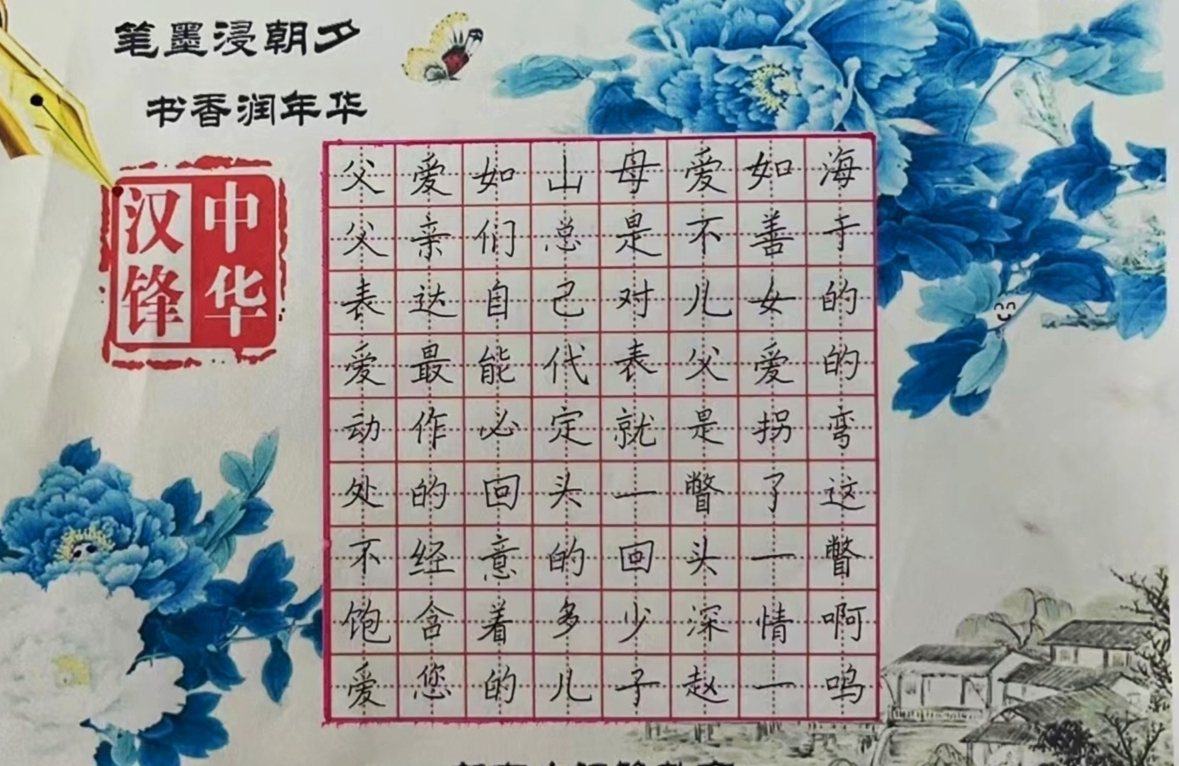 笔墨浸朝夕
书香润年华
中华
汉锋
父爱如山母爱如海
父亲们总是不善于
表达自己对儿女的
爱最能代表父爱的
动作必定就是拐弯
处的回头一瞥了这
不经意的回头一瞥
饱含着多少深情啊
爱您的儿子赵一鸣